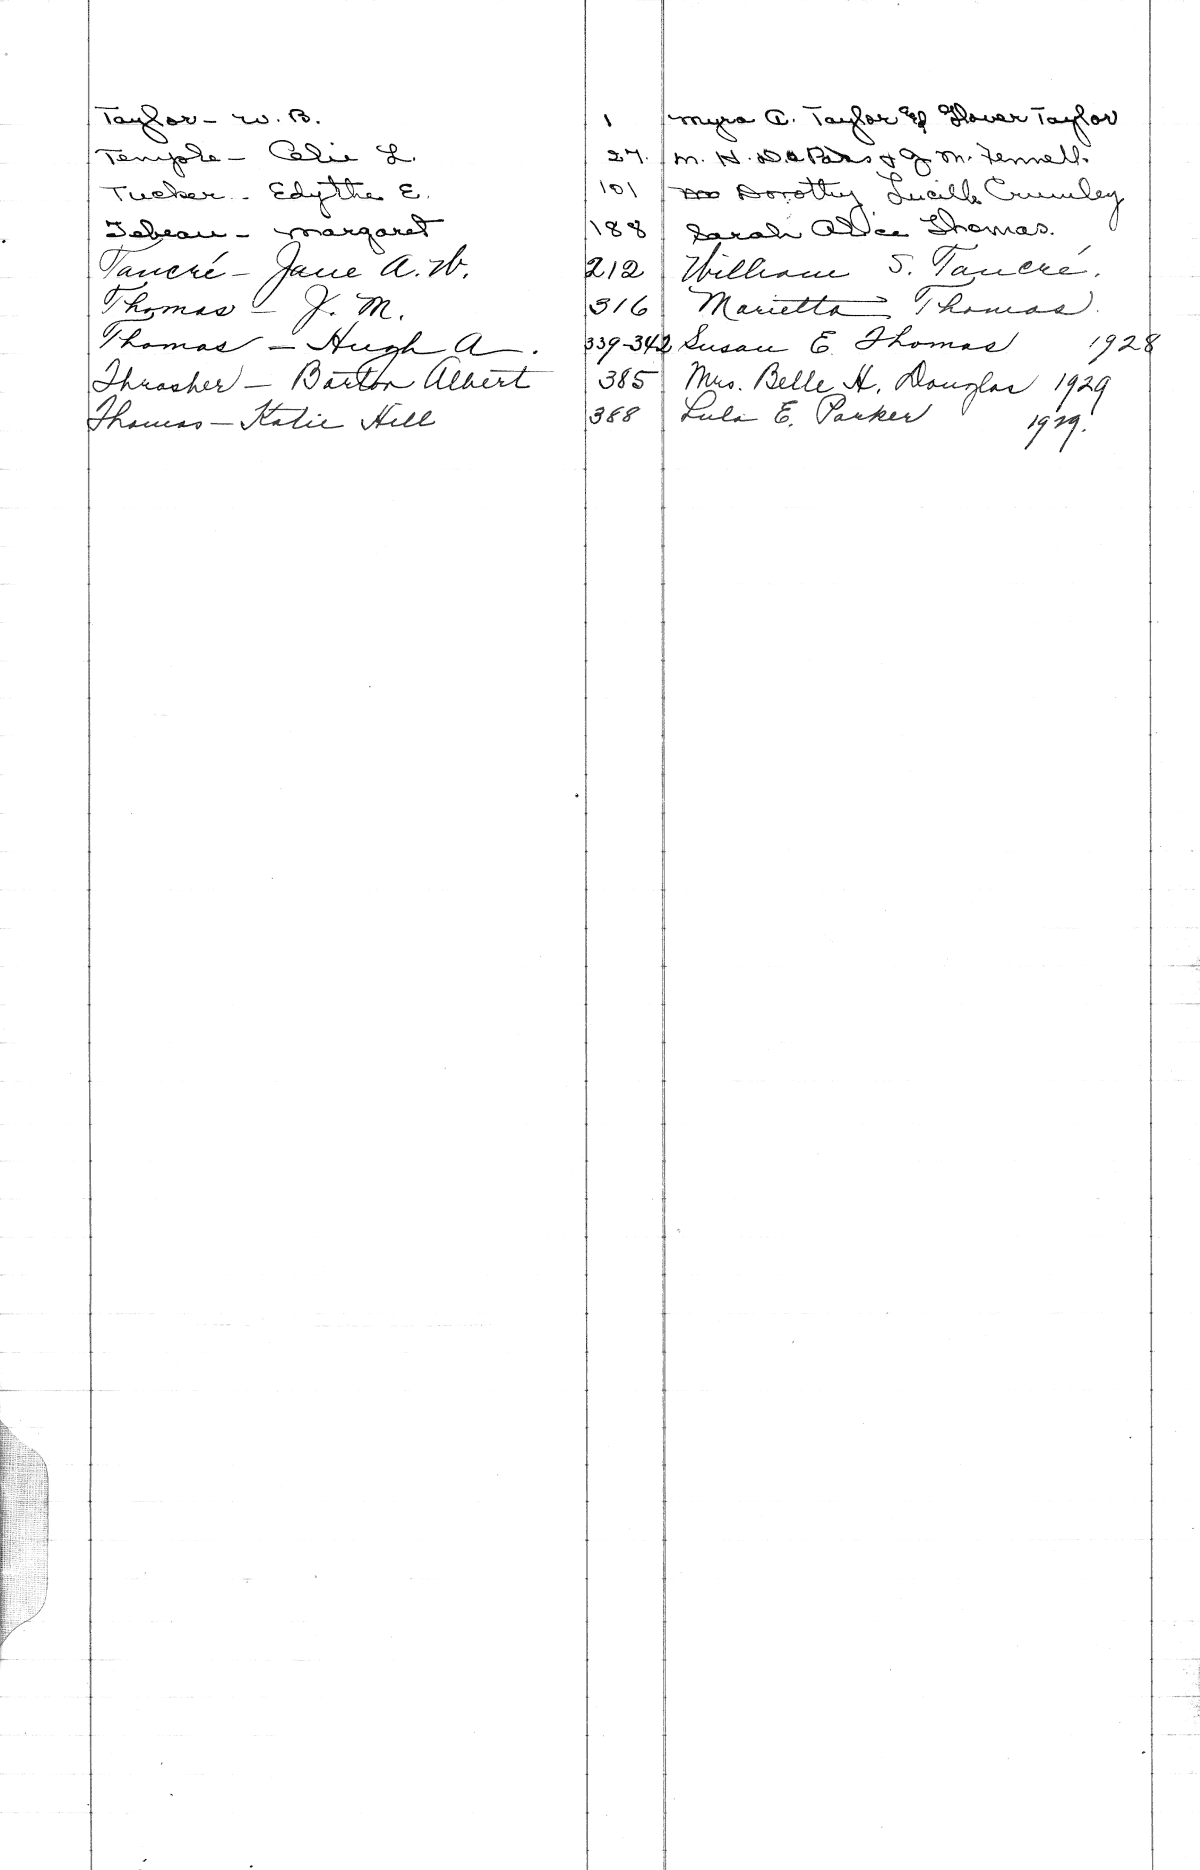 Taylor - W. B. 1 Myra A. Taylor & Glover Taylor
Temple - Celie L. 27. M. H. & J. M. Fennell.
Tucker - Edythe E. 101 Dorothy Lucille Crumley
Tebeau - Margaret 188 Sarah Alice Thomas.
Tancré - Jane A. W. 212 William S. Tancré.
Thomas - J. M. 316 Marietta Thomas.
Thomas - Hugh A. 339-342 Susan E Thomas 1928
Thrasher - Barton Albert 385 Mrs. Belle H. Douglas 1929
Thomas - Katie Hill 388 Lula E. Parker 1929.